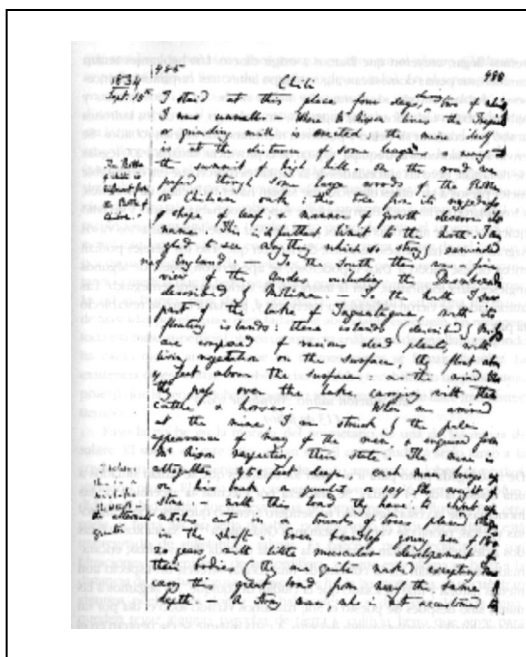 485 488
1834 Chili
Sept: 15th I staid at this place four days, during two of which
I was unwell. — Where Mr Nixon lives, the Trapiche
or grinding mill is erected: the mine itself
is at the distance of some leagues & nearly
the summit of high hill. On the road we
passed through some large woods of the Roble
or Chilian oak; this tree from its ruggedness
& shape of leaf & manner of growth deserves its
name. (This is its furthest limit to the North.) I was
glad to see anything which so strongly reminded
me of England. — To the South there was a fine
view of the Andes including the
described From the hill I saw
part of the lake of Taguatagua, with its
floating islands: these islands (described by
are composed of various dead plants, with
living vegetation on the surface; they float about
4 feet above the surface: as the wind blows
they pass over the lake carrying with them
cattle & horses. — When we arrived
at the mine, I was struck by the pale
appearance of many of the men, & enquired from
Mr Nixon respecting their state. The mine is
altogether 450 feet deep, each man brings up
on his back a quintal or 104 lbs weight of
stone. — With this load they have to climb up
notches cut in trunks of trees placed
in the shaft. — Even beardless young men of 18 &
20 years with little muscular development of
their bodies (they are quite naked excepting
carry this great load from nearly the same
depth. — A strong man, who is not accustomed to
The Roble
of Chiloe is
different from
the Roble of